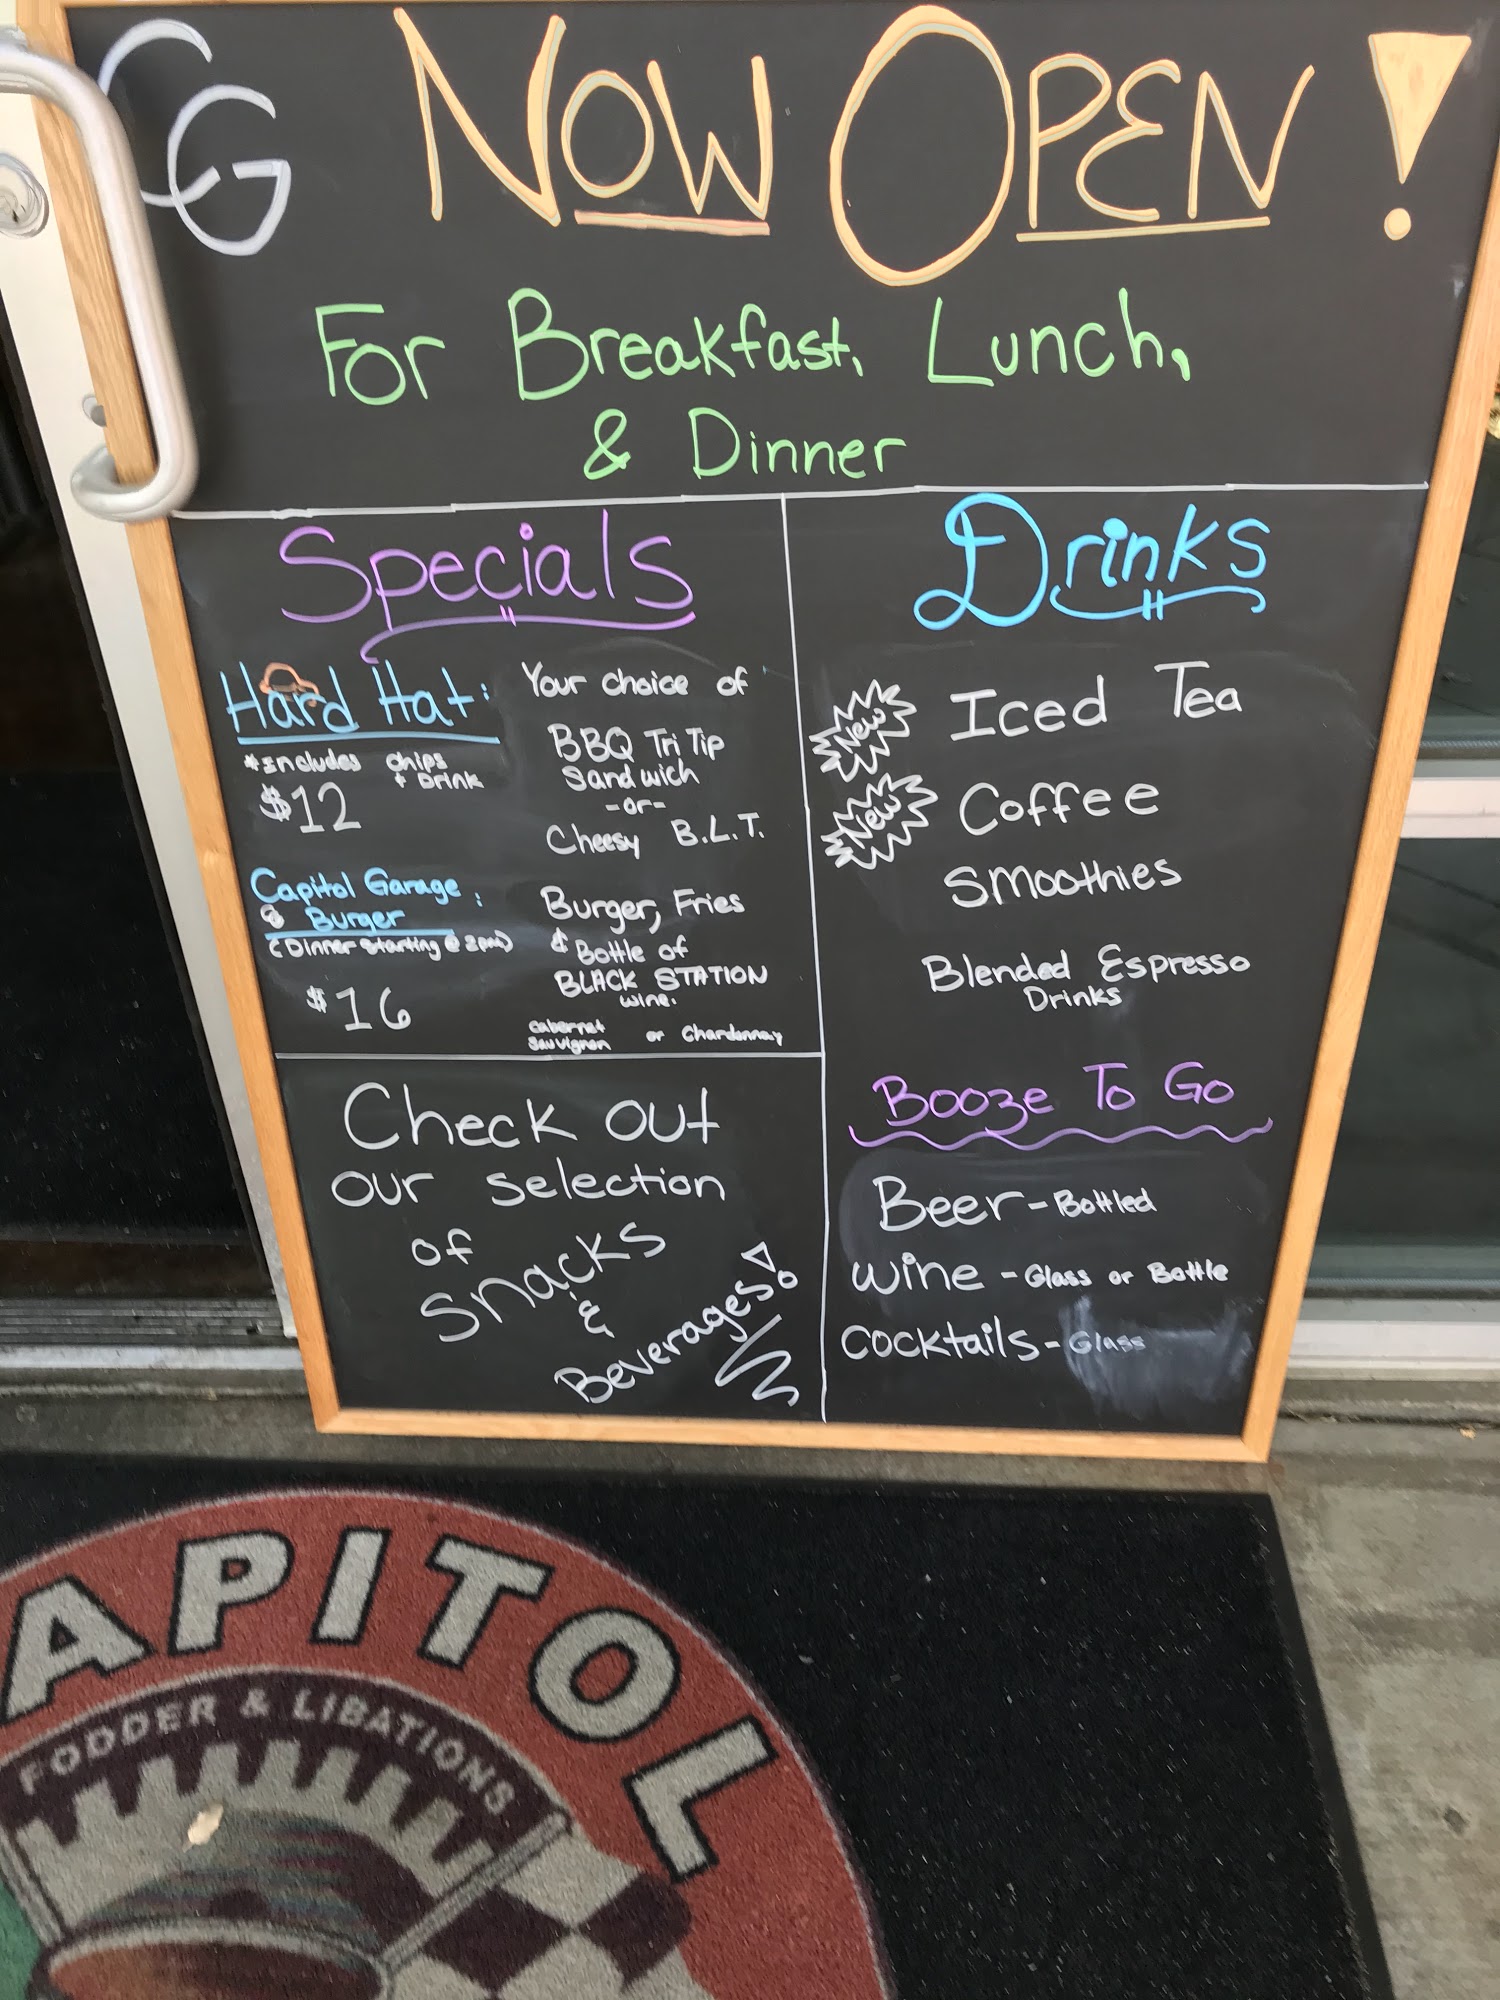 CG NOW OPEN!
For Breakfast, Lunch,
& Dinner
Specials
Hard Hat:
*Includes chips
+ Drink
$12
Your choice of
BBQ Tri Tip
Sandwich
-or-
Cheesy B.L.T.
Capitol Garage
Burger :
(Dinner starting @ 2pm)
$16
Burger, Fries
& Bottle of
BLACK STATION
wine.
Cabernet
Sauvignon or Chardonnay
Check out
our selection
of
Snacks
&
Beverages!
Drinks
New Iced Tea
New Coffee
Smoothies
Blended Espresso
Drinks
Booze To Go
Beer - Bottled
Wine - Glass or Bottle
Cocktails - Glass
APITOL
FODDER & LIBATIONS